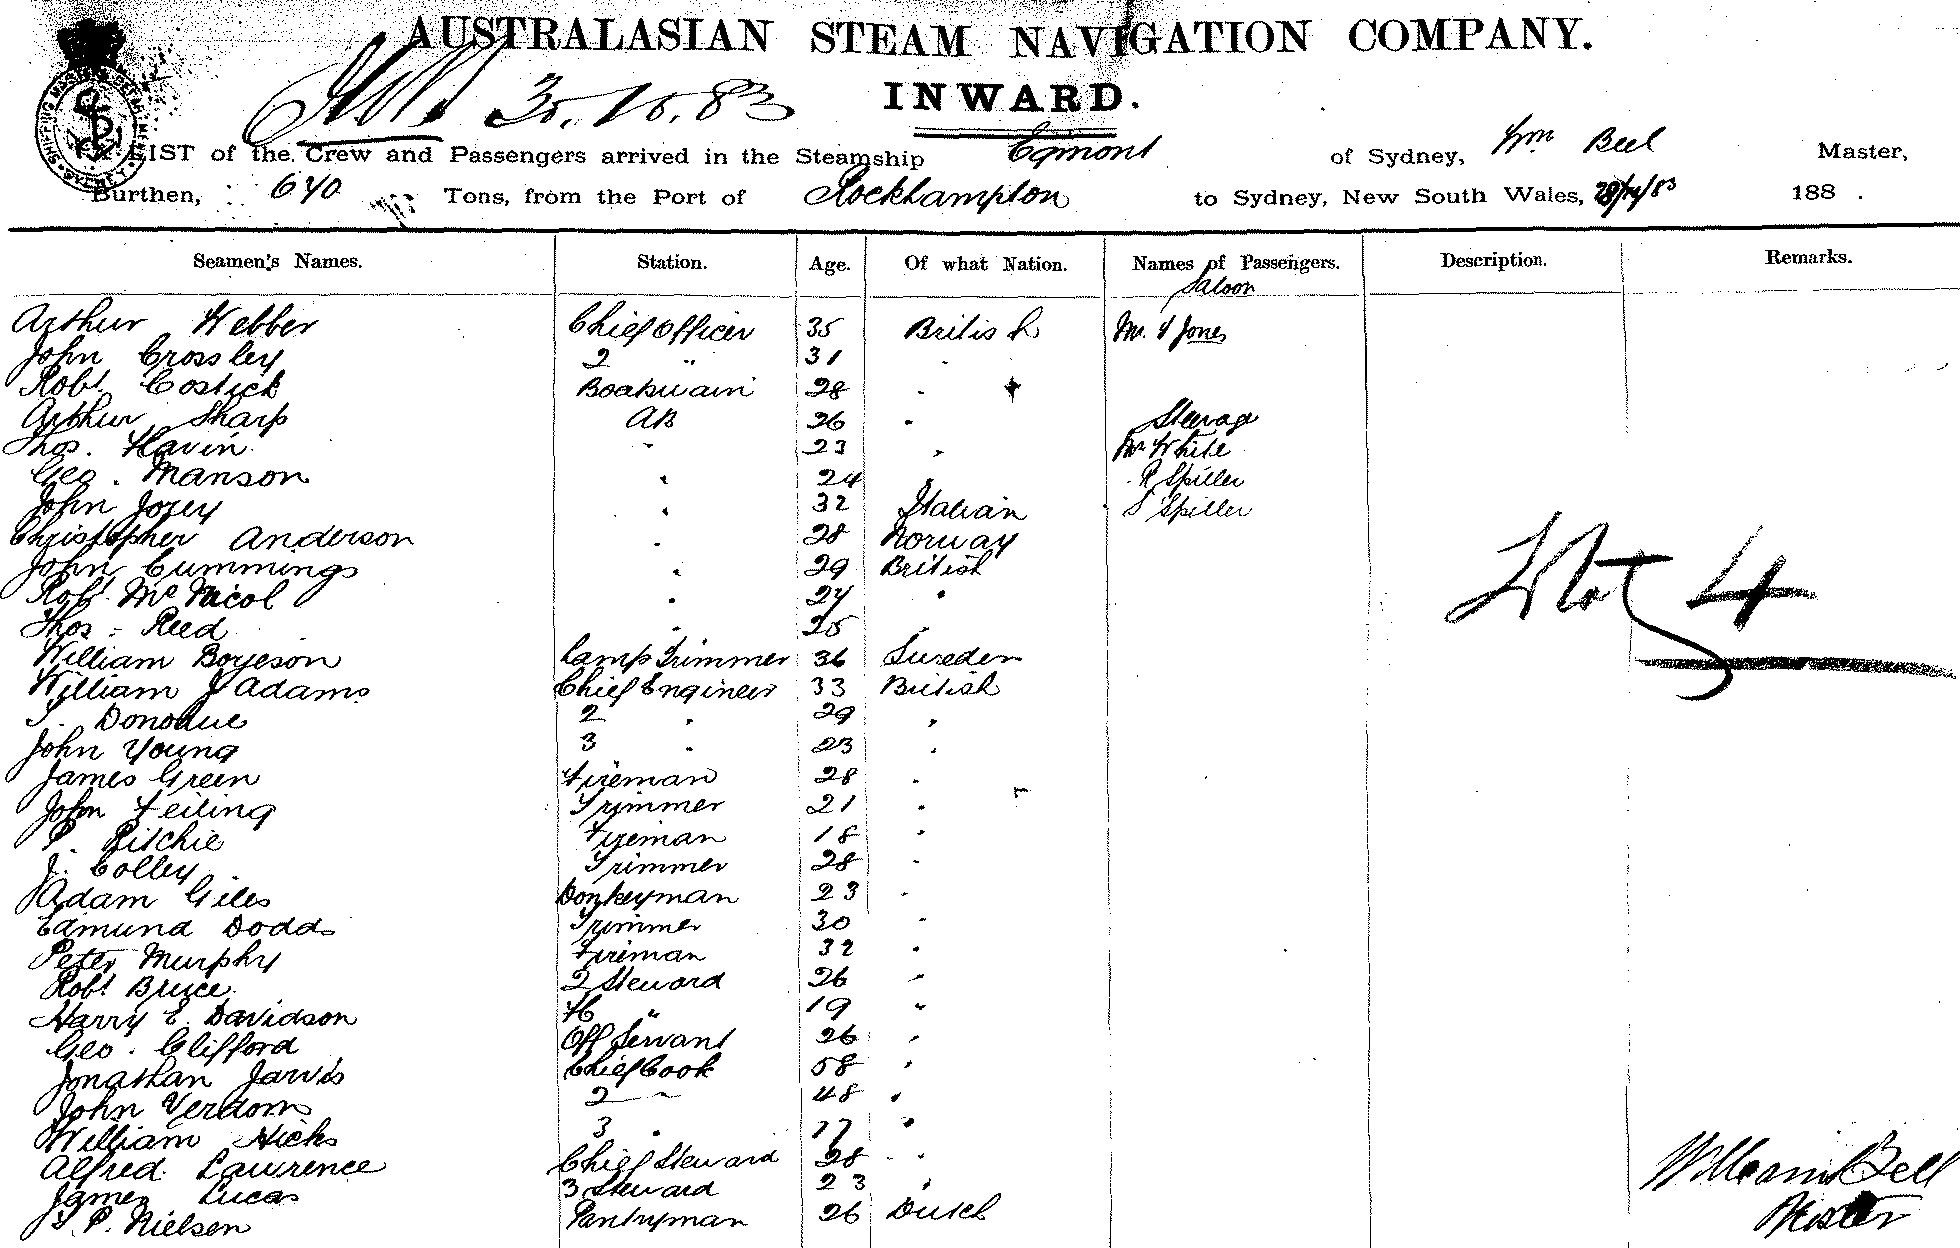 AUSTRALASIAN STEAM NAVIGATION COMPANY.
30.10.83 INWARD.
LIST of the Crew and Passengers arrived in the Steamship Egmont of Sydney, Wm Bell Master,
Burthen, 640 Tons, from the Port of Rockhampton to Sydney, New South Wales, 188 .
Seamen's Names. Station. Age. Of what Nation. Names of Passengers. Description. Remarks.
Saloon
Arthur Webber Chief Officer 35 British Mr. Jones
John Crossley 2 " 31 "
Robt. Costick Boatswain 28 "
Arthur Sharp AB 26 " Steerage
Thos. Havin " 23 " Mr White
Geo. Manson " 24 " R Spiller
John Jorey " 32 Italian S Spiller
Christopher Anderson " 28 Norway
John Cummings " 29 British
Robt. McNicol " 24 "
Thos. Reed " 25 "
William Boyeson Lamp Trimmer 36 Sweden
William J Adams Chief Engineer 33 British
T. Donohue 2 " 29 "
John Young 3 " 23 "
James Green Fireman 28 "
John Feiling Trimmer 21 "
P. Ritchie Fireman 18 "
J. Colley Trimmer 28 "
Adam Giles Donkeyman 23 "
Edmund Dodds Trimmer 30 "
Peter Murphy Fireman 32 "
Robt Bruce 2 Steward 26 "
Harry E. Davidson " 19 "
Geo. Clifford Off Servant 26 "
Jonathan Jarvis Chief Cook 58 "
John Verdoms 2 " 48 "
William Hicks 3 " 17 "
Alfred Lawrence Chief Steward 28 "
James Lucas 3 Steward 23 "
T. P. Nielsen Pantryman 26 Dutch
Tot 4
William Bell
Master